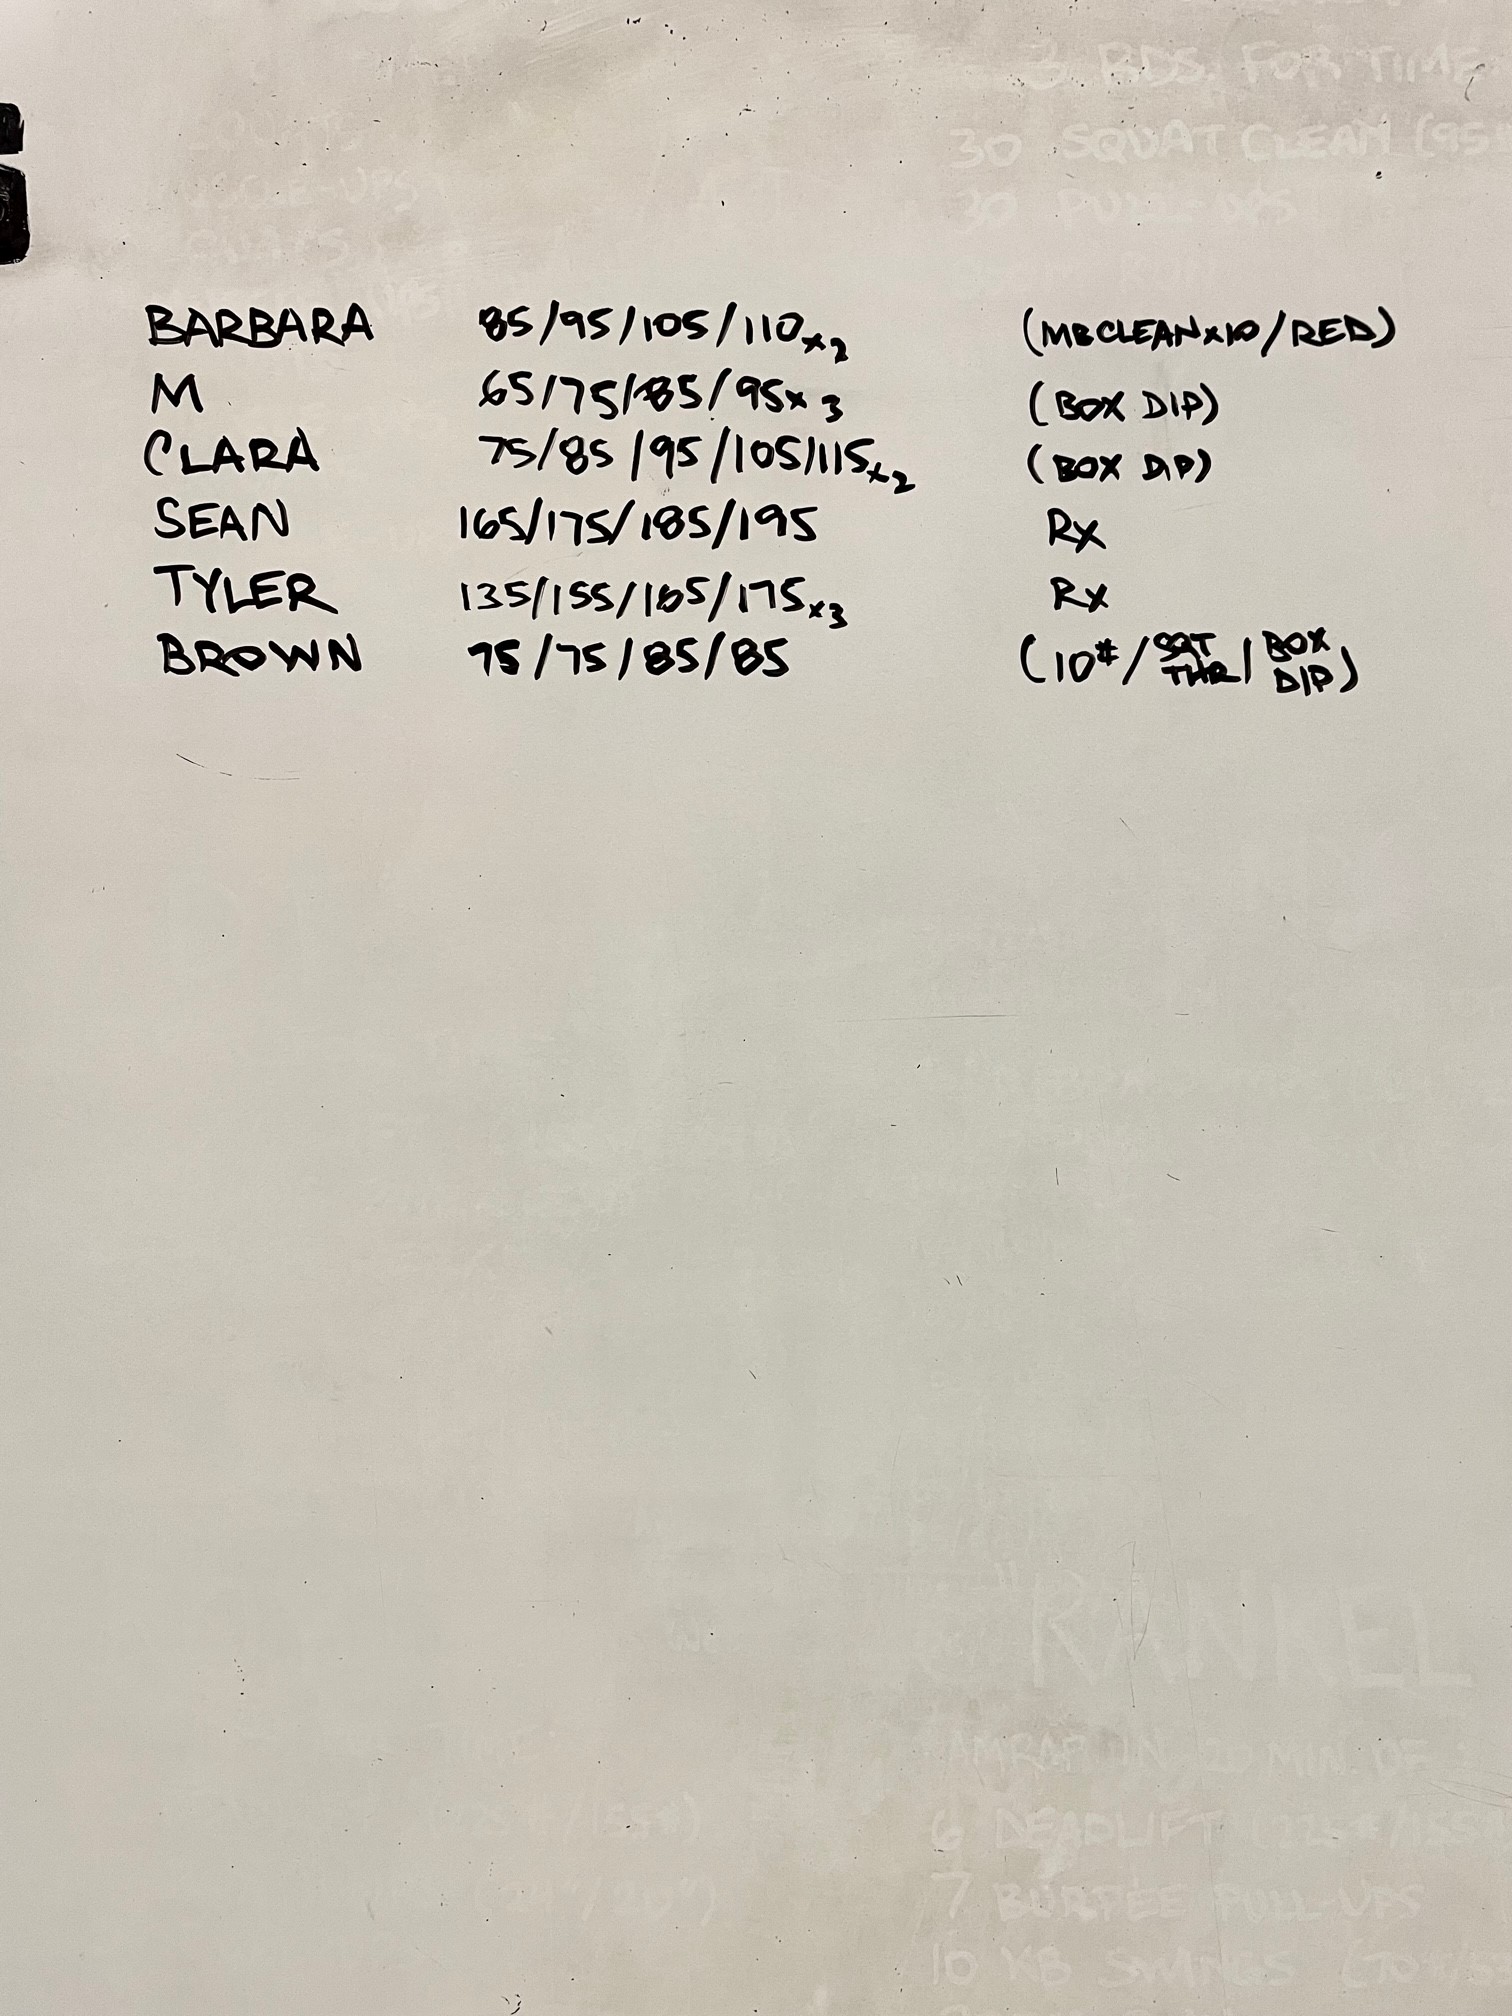 3 RDS. FOR TIME
30 SQUAT CLEAN (95
30 PULL-UPS
BARBARA 85/95/105/110x2 (MBCLEANx10/RED)
M 65/75/85/95x3 (BOX DIP)
CLARA 75/85/95/105/115x2 (BOX DIP)
SEAN 165/175/185/195 Rx
TYLER 135/155/165/175x3 Rx
BROWN 75/75/85/85 (10#/SQT THR/BOX DIP)
"RANKEL
AMRAP IN 20 MIN. OF:
6 DEADLIFT (225#/155
7 BURPEE PULL-UPS
10 KB SWINGS (70#/